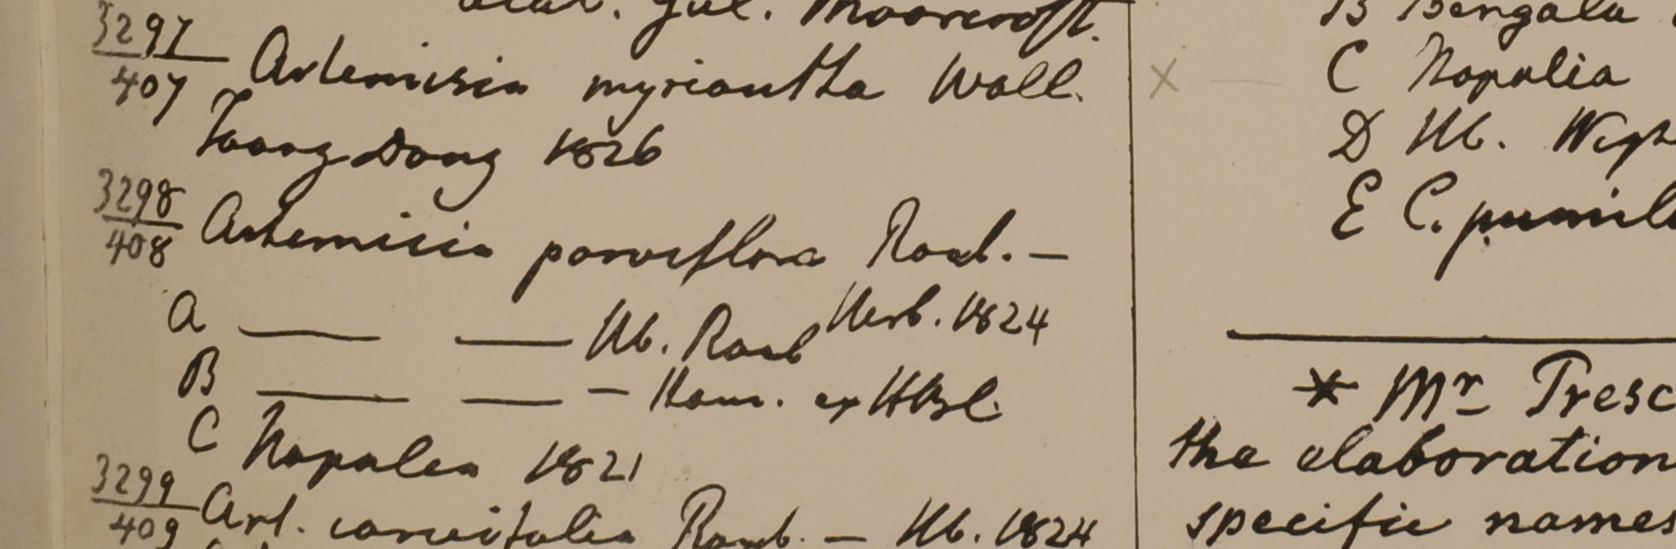 Gul. Moorcroft.
3297
407 Artemisia myriantha Wall.
Taong Dong 1826
3298
408 Artemisia parviflora Roxb. —
A — — Hb. Roxb Herb. 1824
B — — – Ham. ex HBl.
C Napalea 1821
3299
409 Art. Roxb. — Hb. 1824
B Bengala
× — C Napalia
D Hb. Wigh
E C. pumil
* Mr Tresc
the elaboration
specific names